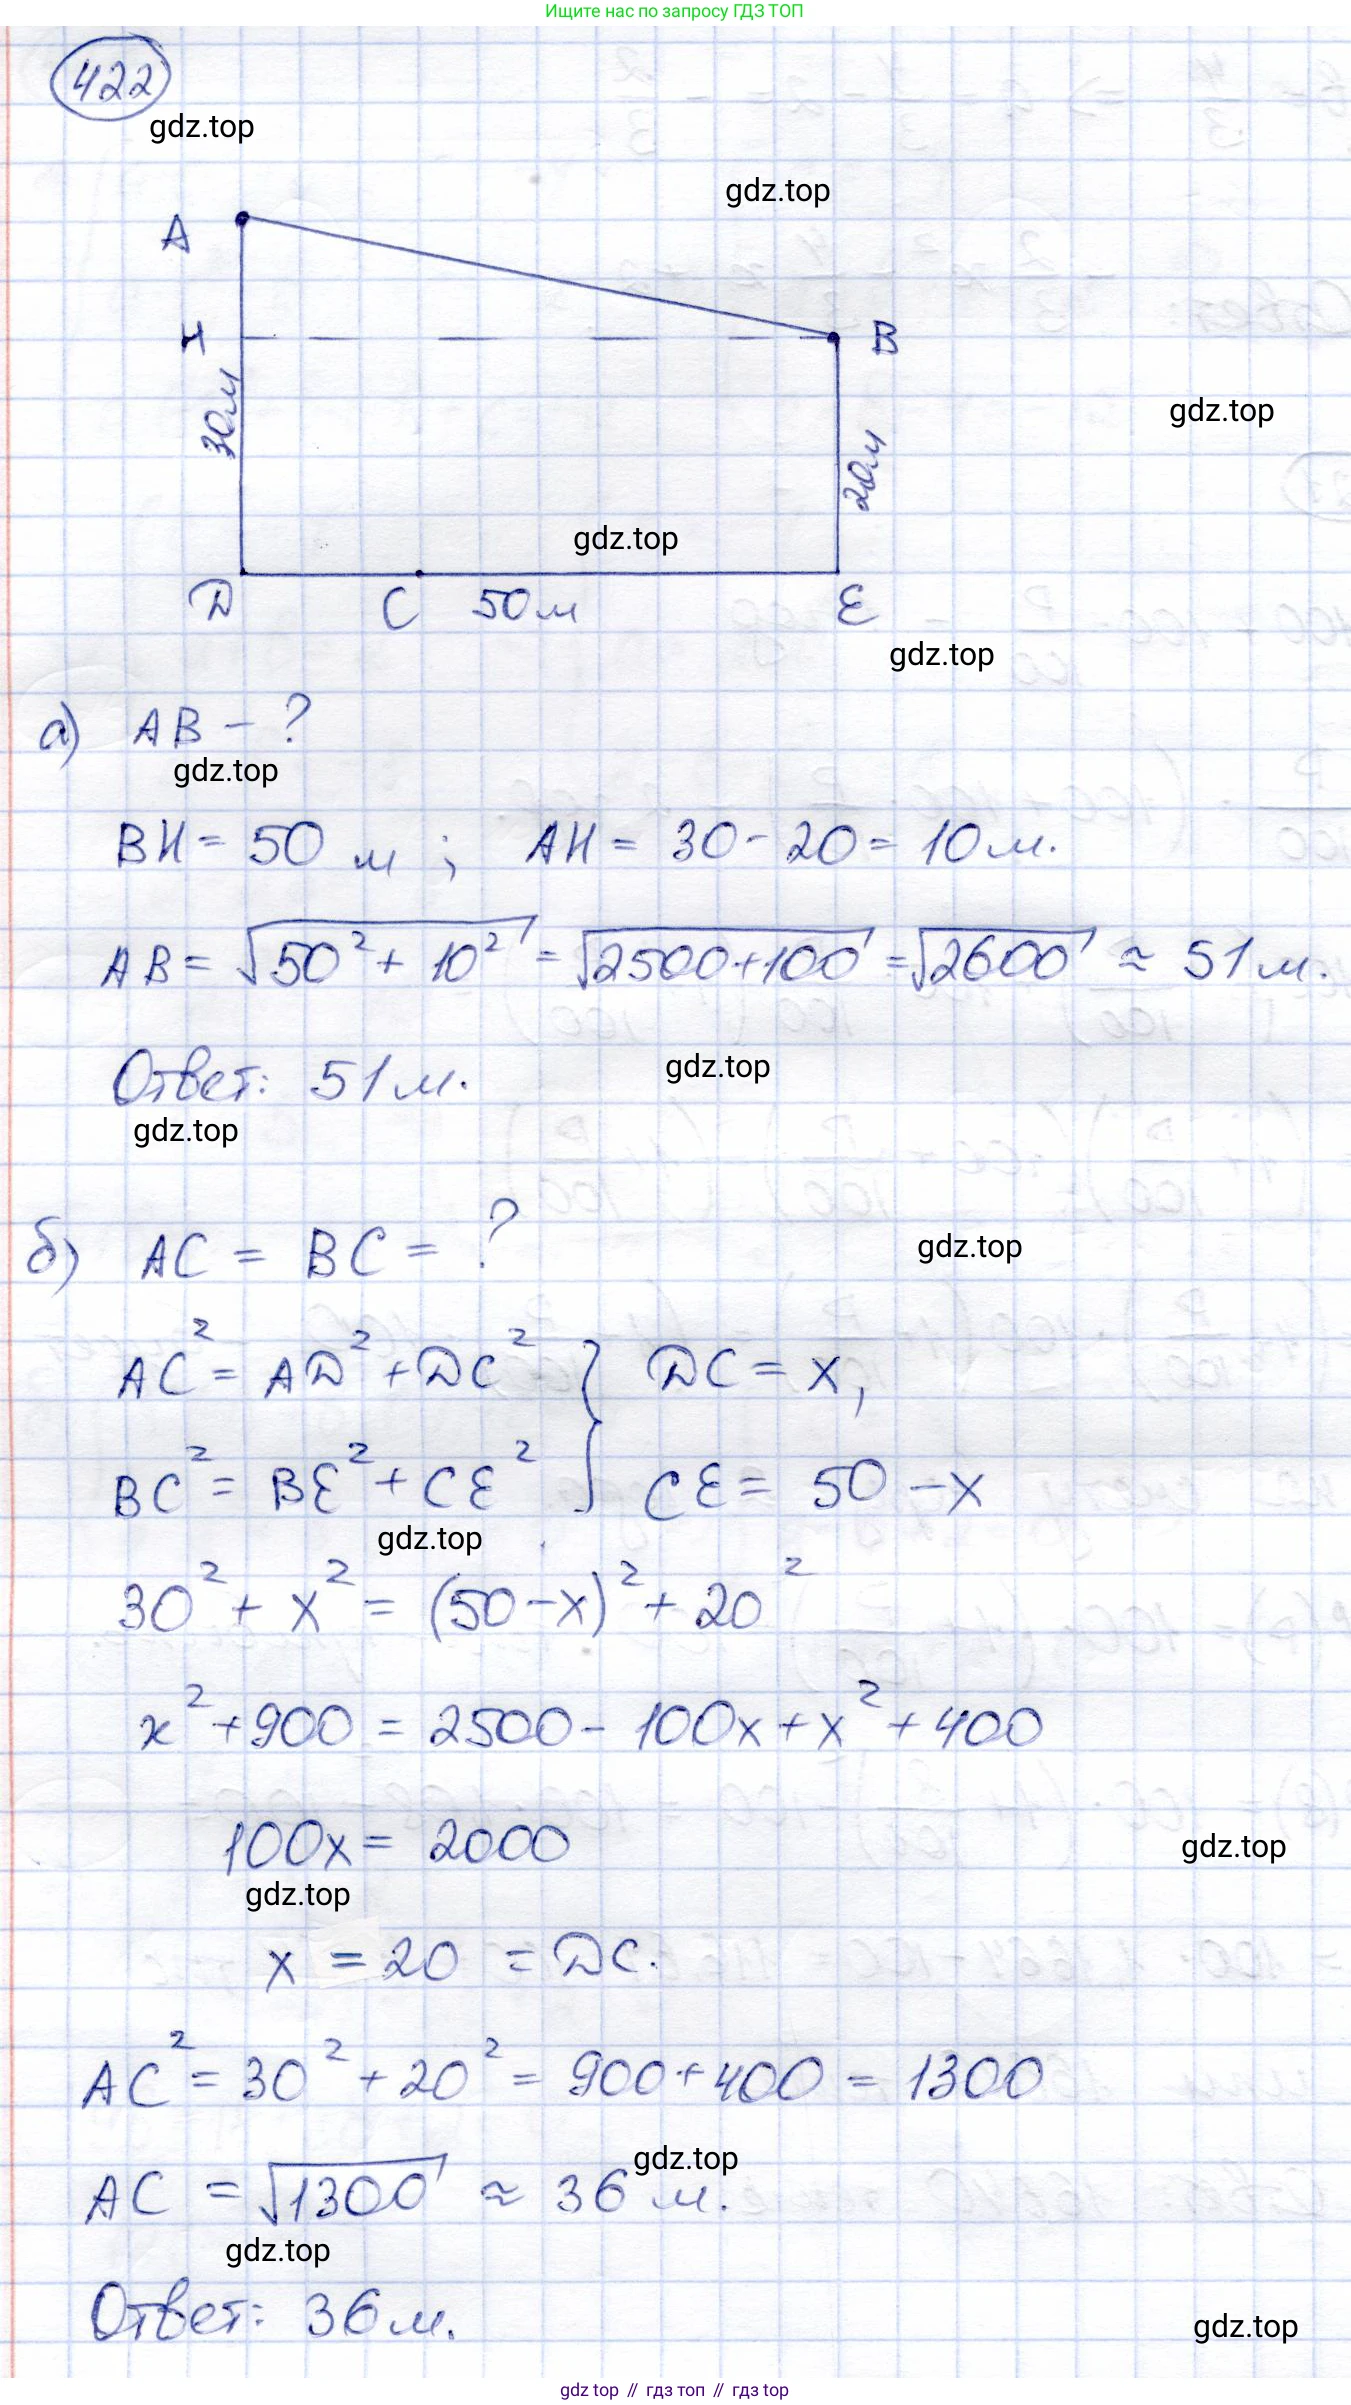 Ищите нас по запросу ГДЗ ТОП
422
gdz.top
gdz.top
A
H
B
gdz.top
30м
20м
gdz.top
D
C
50м
E
gdz.top
а) AB - ?
gdz.top
BH = 50 м ; AH = 30 - 20 = 10 м.
AB = √50² + 10² = √2500+100 = √2600 ≈ 51 м.
Ответ: 51 м.
gdz.top
gdz.top
б) AC = BC = ?
gdz.top
AC² = AD² + DC² } DC = x,
BC² = BE² + CE² } CE = 50 - x
gdz.top
30² + x² = (50 - x)² + 20²
x² + 900 = 2500 - 100x + x² + 400
100x = 2000
gdz.top
gdz.top
x = 20 = DC.
AC² = 30² + 20² = 900 + 400 = 1300
gdz.top
AC = √1300 ≈ 36 м.
gdz.top
Ответ: 36 м.
gdz.top
gdz top // гдз топ // гдз top